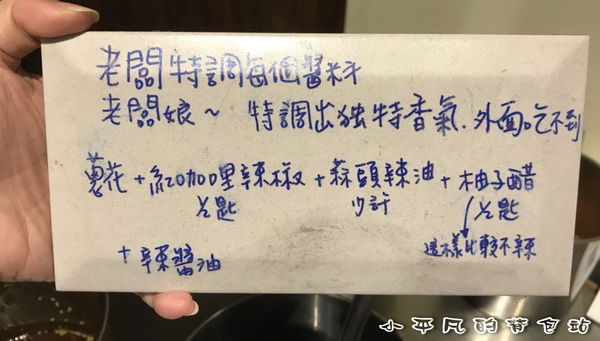 老闆特調每個醬料
老闆娘~ 特調出独特香氣.外面吃不到
蔥花+紅咖哩辣椒+蒜頭辣油+柚子醋
½匙 少許 ½匙
這樣比較不辣
+辣醬油
小平凡的背包站